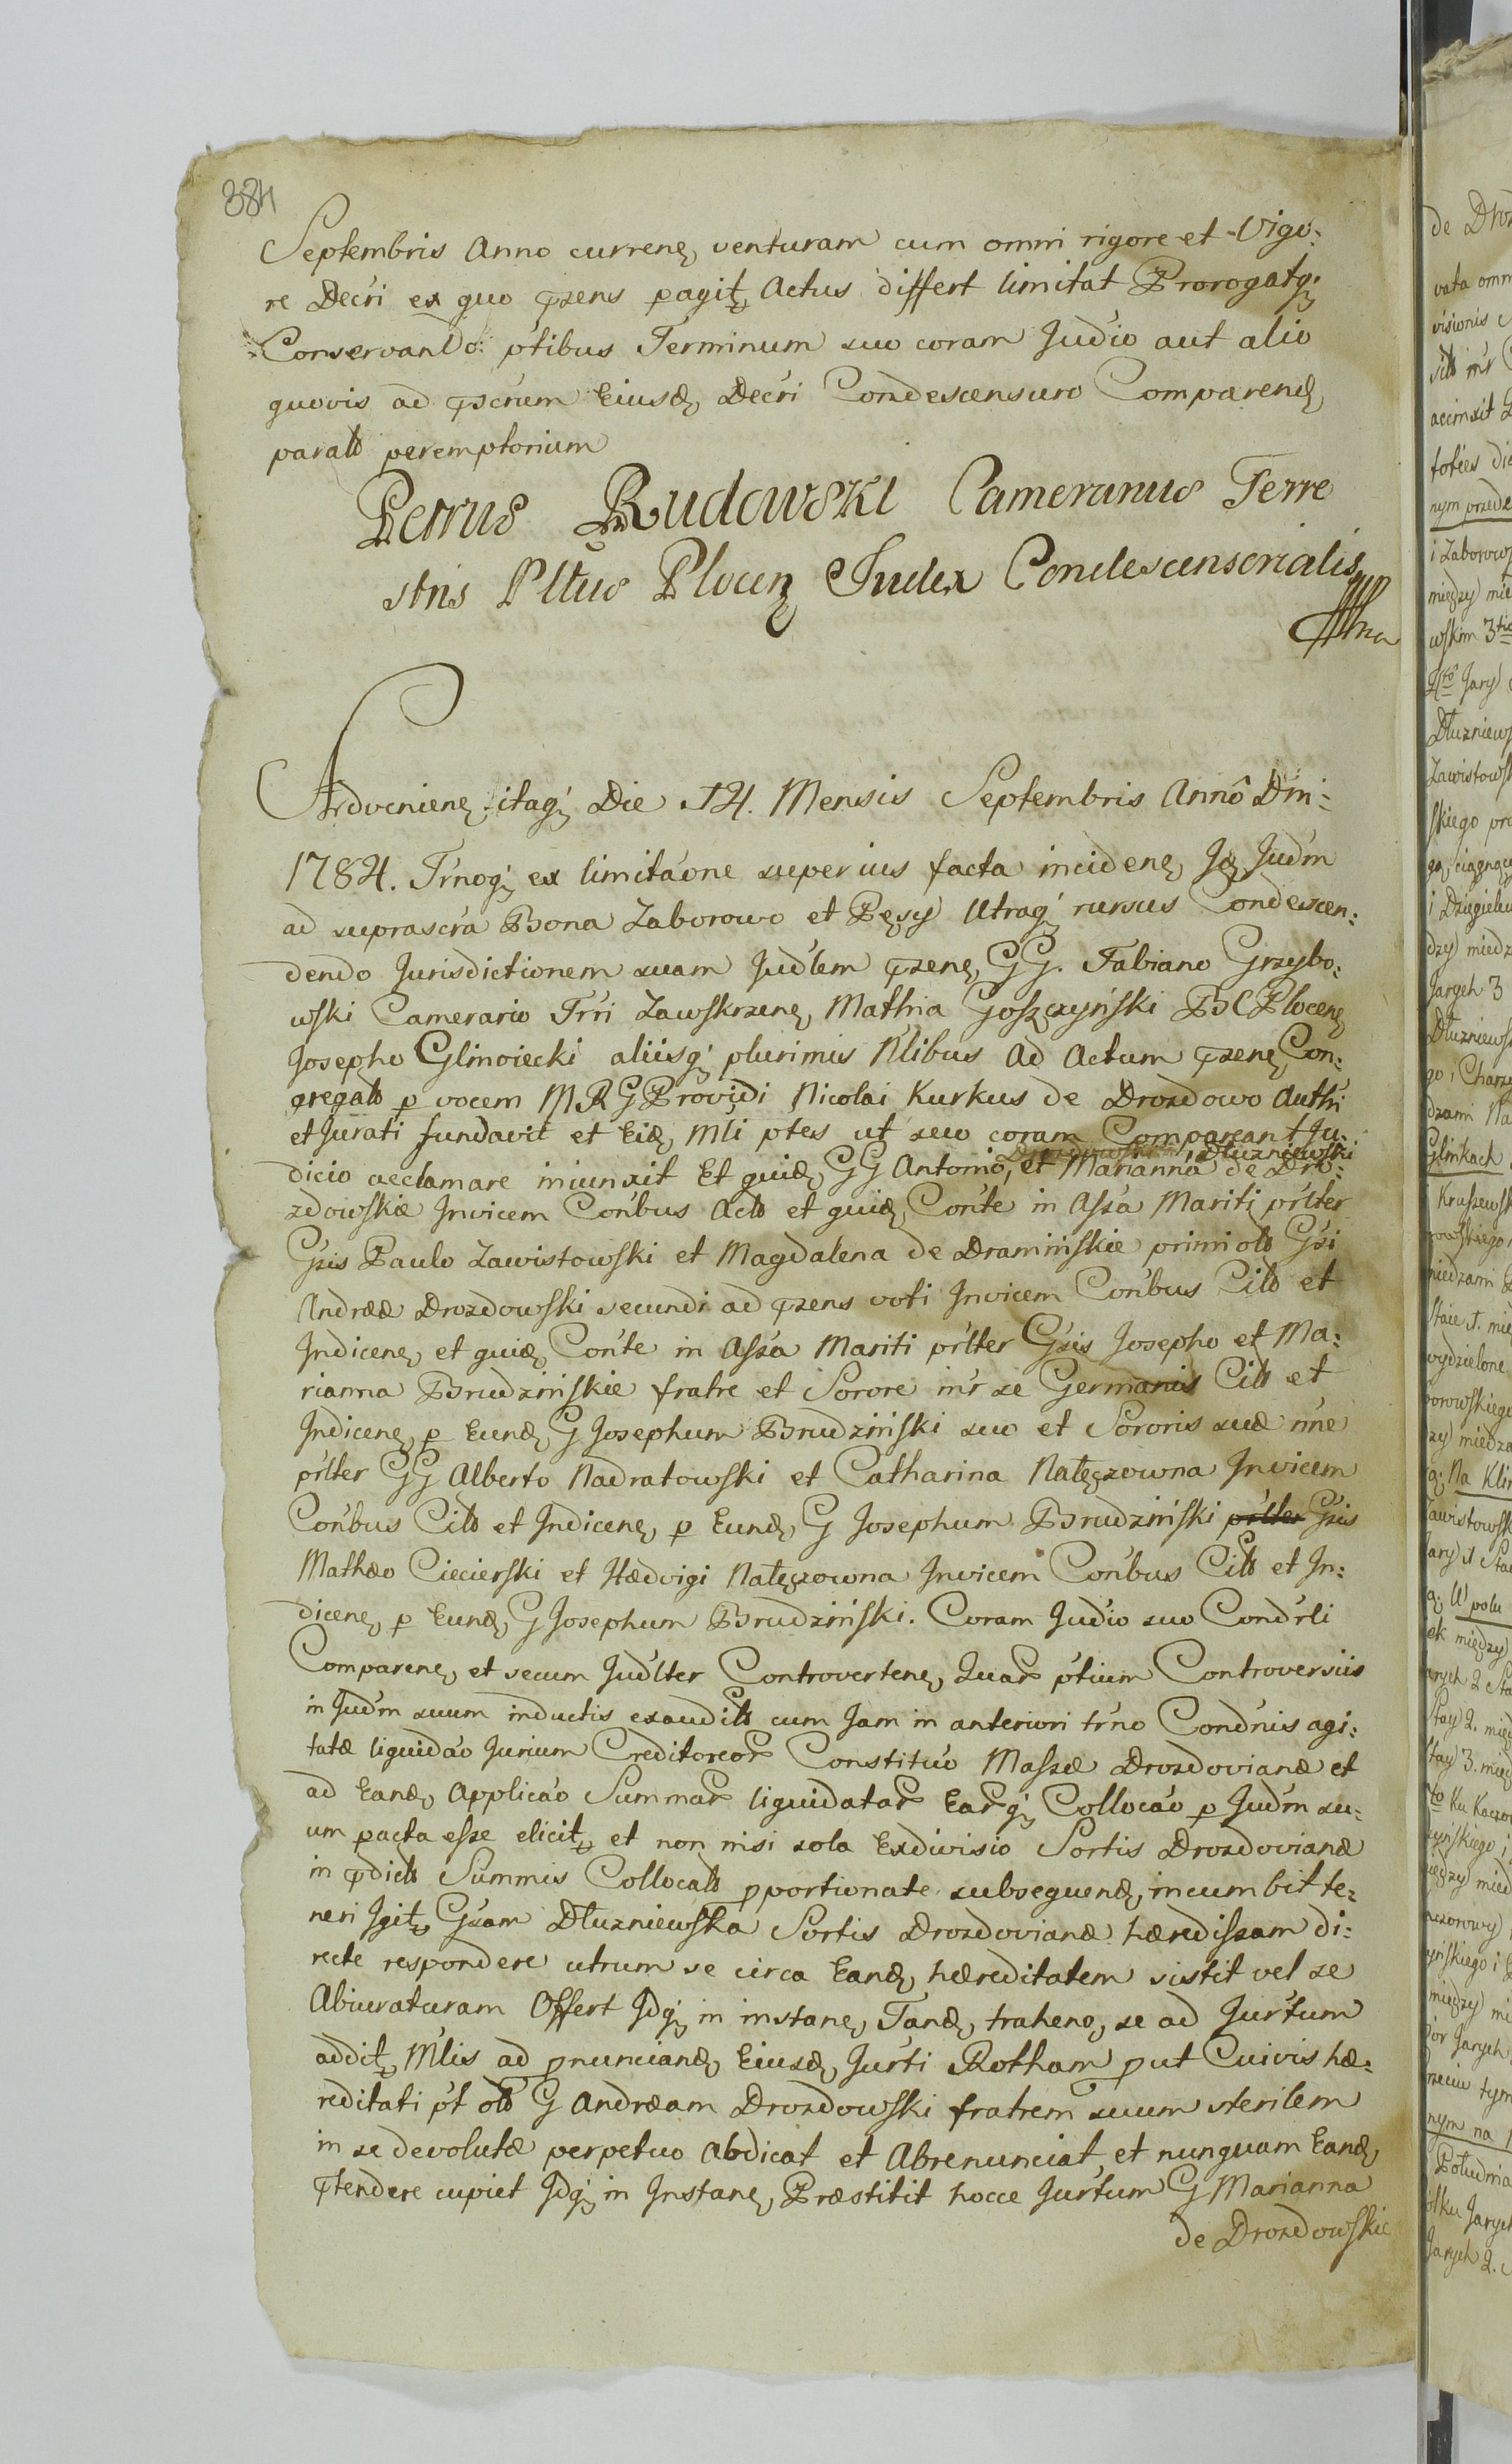 884
Septembris Anno currenę venturam cum omni rigore et Vigo:
re Decri ex quo pzens pagit, Actus differt limitat Prorogatq;
Conservando: ptibus Terminum suo coram Judio aut alio
quovis ad pscrum Eiusd, Decri Condescensuro Comparend,
parato peremptorium
Petrus Rudowski Cameranus Terre
stris Pltus Plocen Judex Condescensorialis
Advenienę itaq; Die 14. Mensis Septembris Annô Dni:
1784. Trnoq; ex limitáone superius facta incidenę Ję Judm
ad suprascra Bona Zaborowo et Pęsy Utraq; rursus Condescen:
dendo Jurisdictionem suam Judlem pzenę, GG. Fabiano Grzybo:
wski Camerario Trri Zawskrzenę, Mathia Goszczyński BC Plocenę
Josepho Glinoiecki aliisq; plurimis Nlibus ad Actum pzenę Con:
gregato p vocem MRG Providi Nicolai Kurkus de Drozdowo Auth
et Jurati fundavit et Eid, Mli ptes ut suo coram Compareant Ju:
Drozdowski Dłuzniewski
dicio acclamare iniunxit Et quid, GG Antonio, et Marianna de Dro:
zdowskie Invicem Conbus Acto et quid, Conte in Assa Mariti prlter
Gsis Paulo Zawistowski et Magdalena de Dramińskie primi olo Gsi
Andreæ Drozdowski secundi ad pzens voti Invicem Conbus Cito et
Indicenę, et quid, Conte in Assa Mariti prlter Gsis Josepho et Ma:
rianna Brudzińskie fratre et Sorore inr se Germanis Cito et
Indicenę, p Eund, G Josephum Brudziński suo et Sororis suæ nne
prlter GG Alberto Nadratowski et Catharina Natęczowna Invicem
Conbus Cito et Indicenę, p Eund, G Josephum Brudziński prlter Gsis
Mathæo Ciecierski et Hædvigi Natęczowna Invicem Conbus Cito et In:
dicenę, p Eund, G Josephum Brudziński. Coram Judio suo Condrli
Comparenę, et secum Judlter Controvertenę, Quar ptium Controversiis
in Judm suum inductis exaudito cum Jam in anteriori trno Condnis agi:
tatæ liquidáo Jurium Creditoreor Constitúo Massæ Drozdovianæ et
ad Eand, Applicáo Summar liquidatar Earq; Collocáo p Judm su:
um pacta esse elicit, et non nisi sola Exdivisio Sortis Drozdovianæ
in pdicto Summis Collocato pportionate subsequend, incumbit te:
neri Igit, Gsam Dłuzniewska Sortis Drozdovianæ hæredissam di:
recte respondere utrum se circa Eand, hæreditatem sistit vel se
Abiuraturam Offert Idq; in instanę, Tand, traheno, se ad Jurtum
addit, Mlis ad pnunciand, Eiusd, Jurti Rotham put Cuivis hæ:
reditati pt olo G Andræam Drozdowski fratrem suum sterilem
in se devolutæ perpetuo Abdicat et Abrenunciat, et nunquam Eand,
ptendere cupiet Idq; in Instanę, Præstitit hocce Jurtum G Marianna
de Drozdowskie